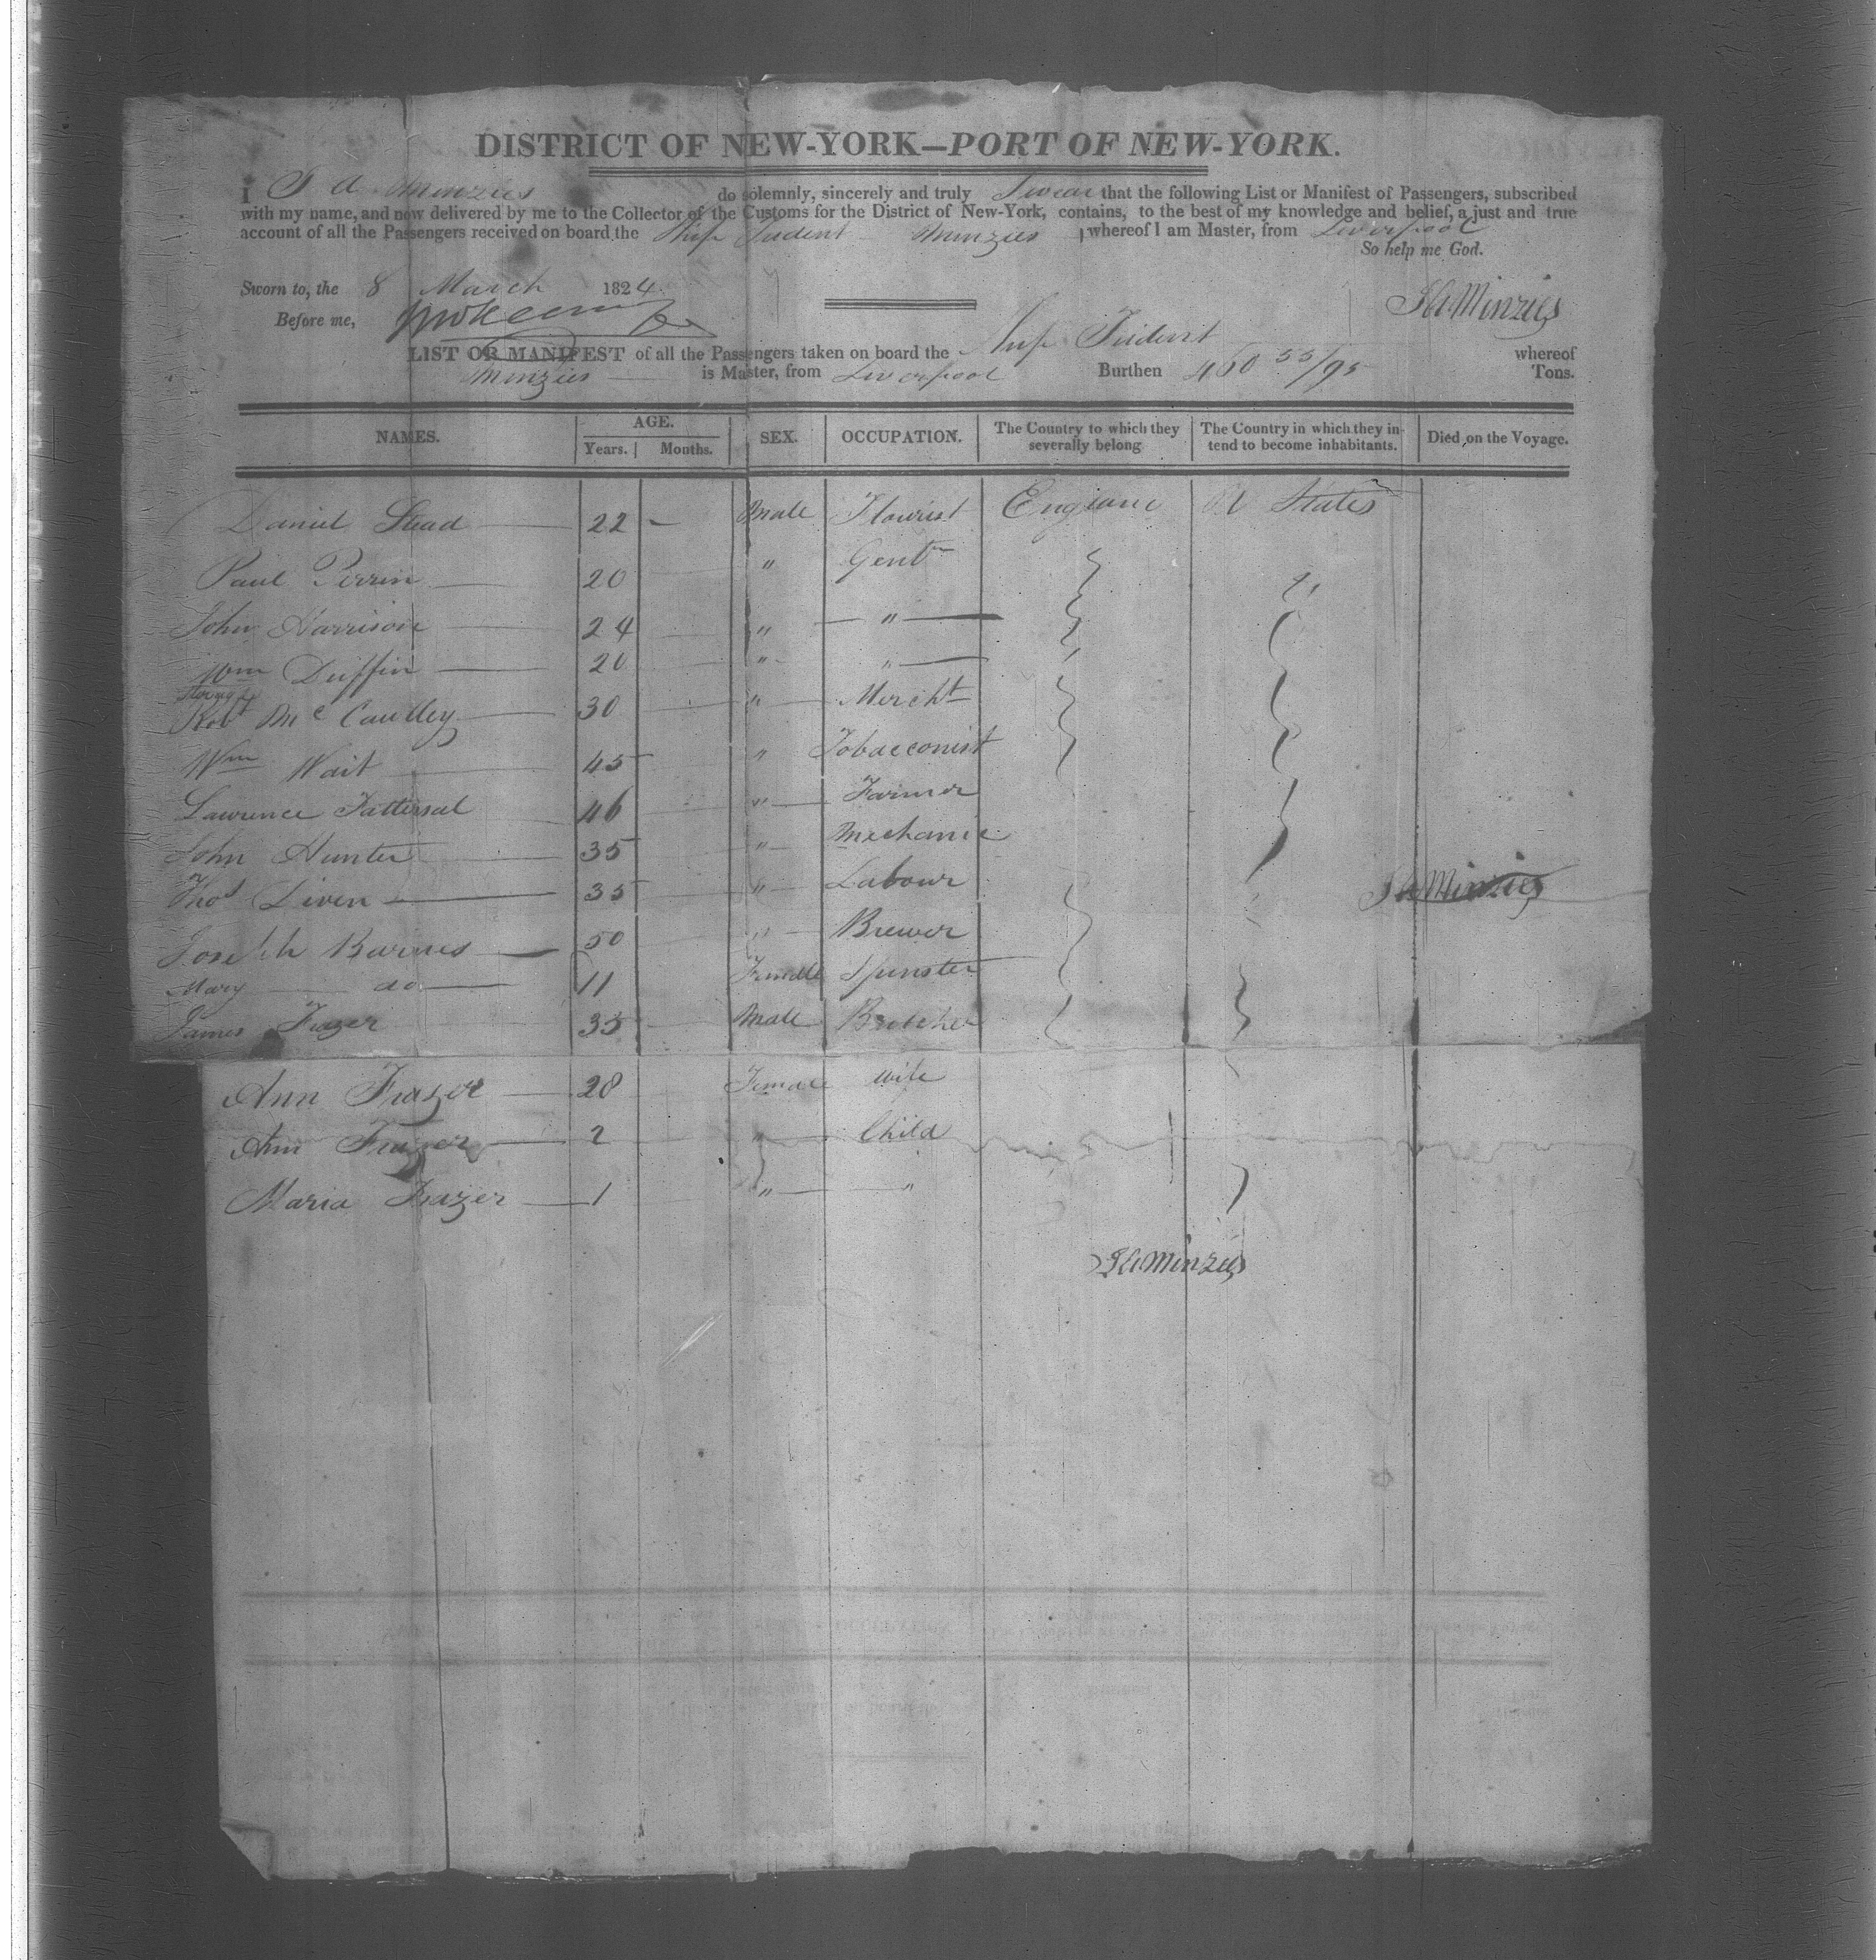 DISTRICT OF NEW-YORK—PORT OF NEW-YORK.
I J A Menzies do solemnly, sincerely and truly Swear that the following List or Manifest of Passengers, subscribed
with my name, and now delivered by me to the Collector of the Customs for the District of New-York, contains, to the best of my knowledge and belief, a just and true
account of all the Passengers received on board the Ship Trident Menzies, whereof I am Master, from Liverpool
So help me God.
Sworn to, the 8 March 1824.
J A Minzies
Before me,
LIST OR MANIFEST of all the Passengers taken on board the Ship Trident whereof
Menzies is Master, from Liverpool Burthen 460 55/95 Tons.
NAMES. AGE. Years. Months. SEX. OCCUPATION. The Country to which they severally belong The Country in which they intend to become inhabitants. Died on the Voyage.
Daniel Stead 22 - Male Flourist England U States
Paul Perrin 20 " Gentn "
John Harrison 24 " "
Wm Duffin 20 " "
Robt Mc Cawlley 30 " Mercht
Wm Wait 45 " Tobacconist
Lawrence Tattersal 46 " Farmer
John Hunter 35 " Mechanic
Thos Liven 35 " Labour
J A Minzies
Joseph Barnes 50 " Brewer
Mary do 11 Female Spinster
James Frazer 35 Male Butcher
Ann Frazer 28 Female Wife
Ann Frazer 2 " Child
Maria Frazer 1 " "
J A Minzies